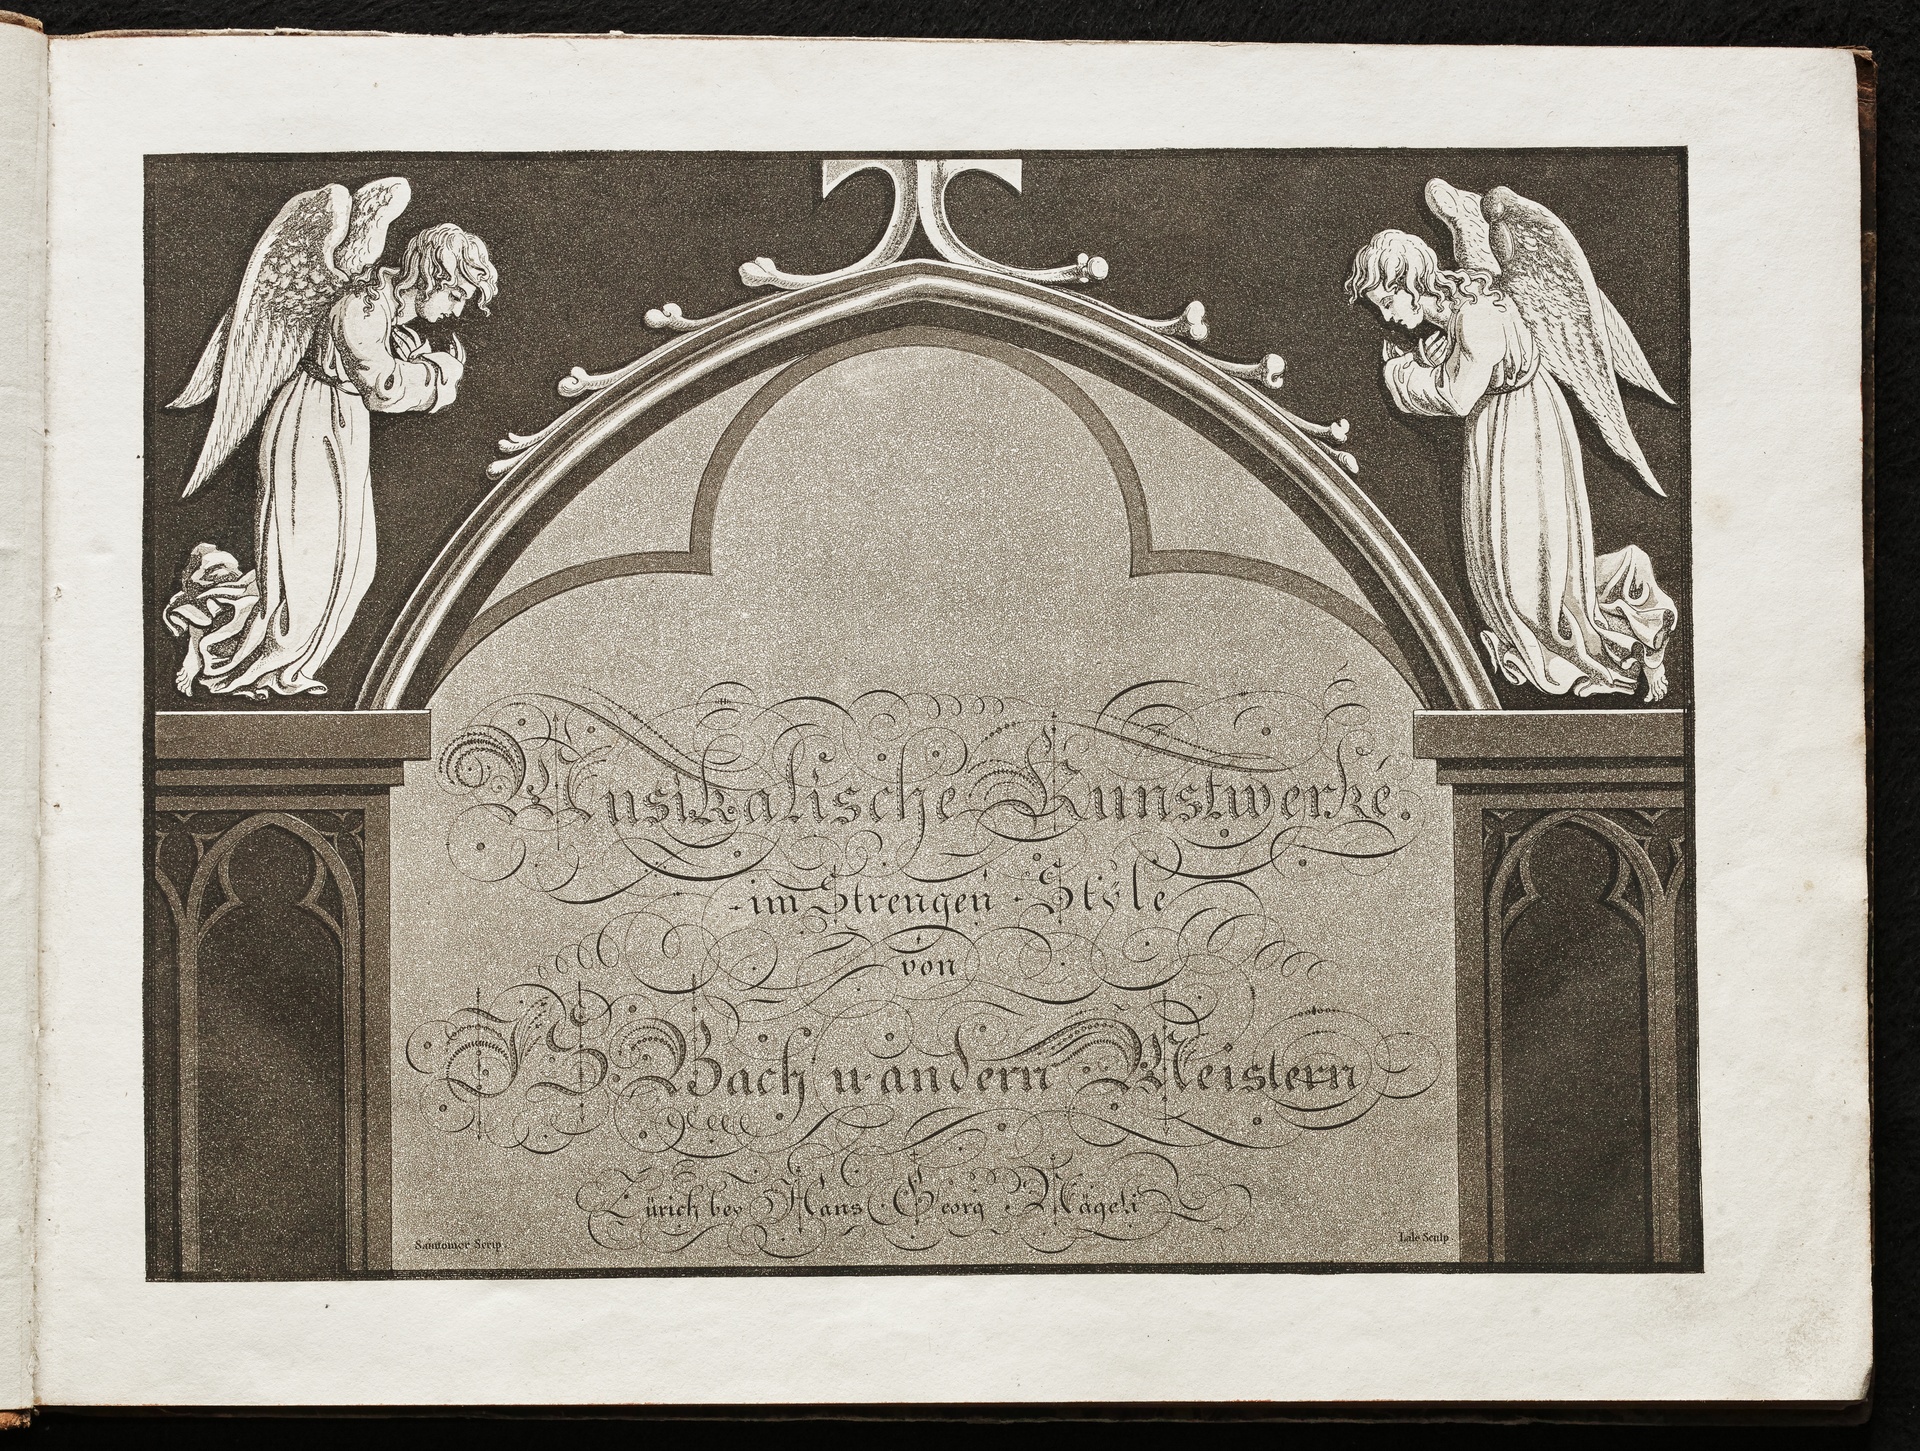 Musikalische Kunstwerke.
im Strengen Style
von
J S. Bach u. andern Meistern
Zürich bey Hans Georg Nägeli
Santomer Scrip.
Lale Sculp